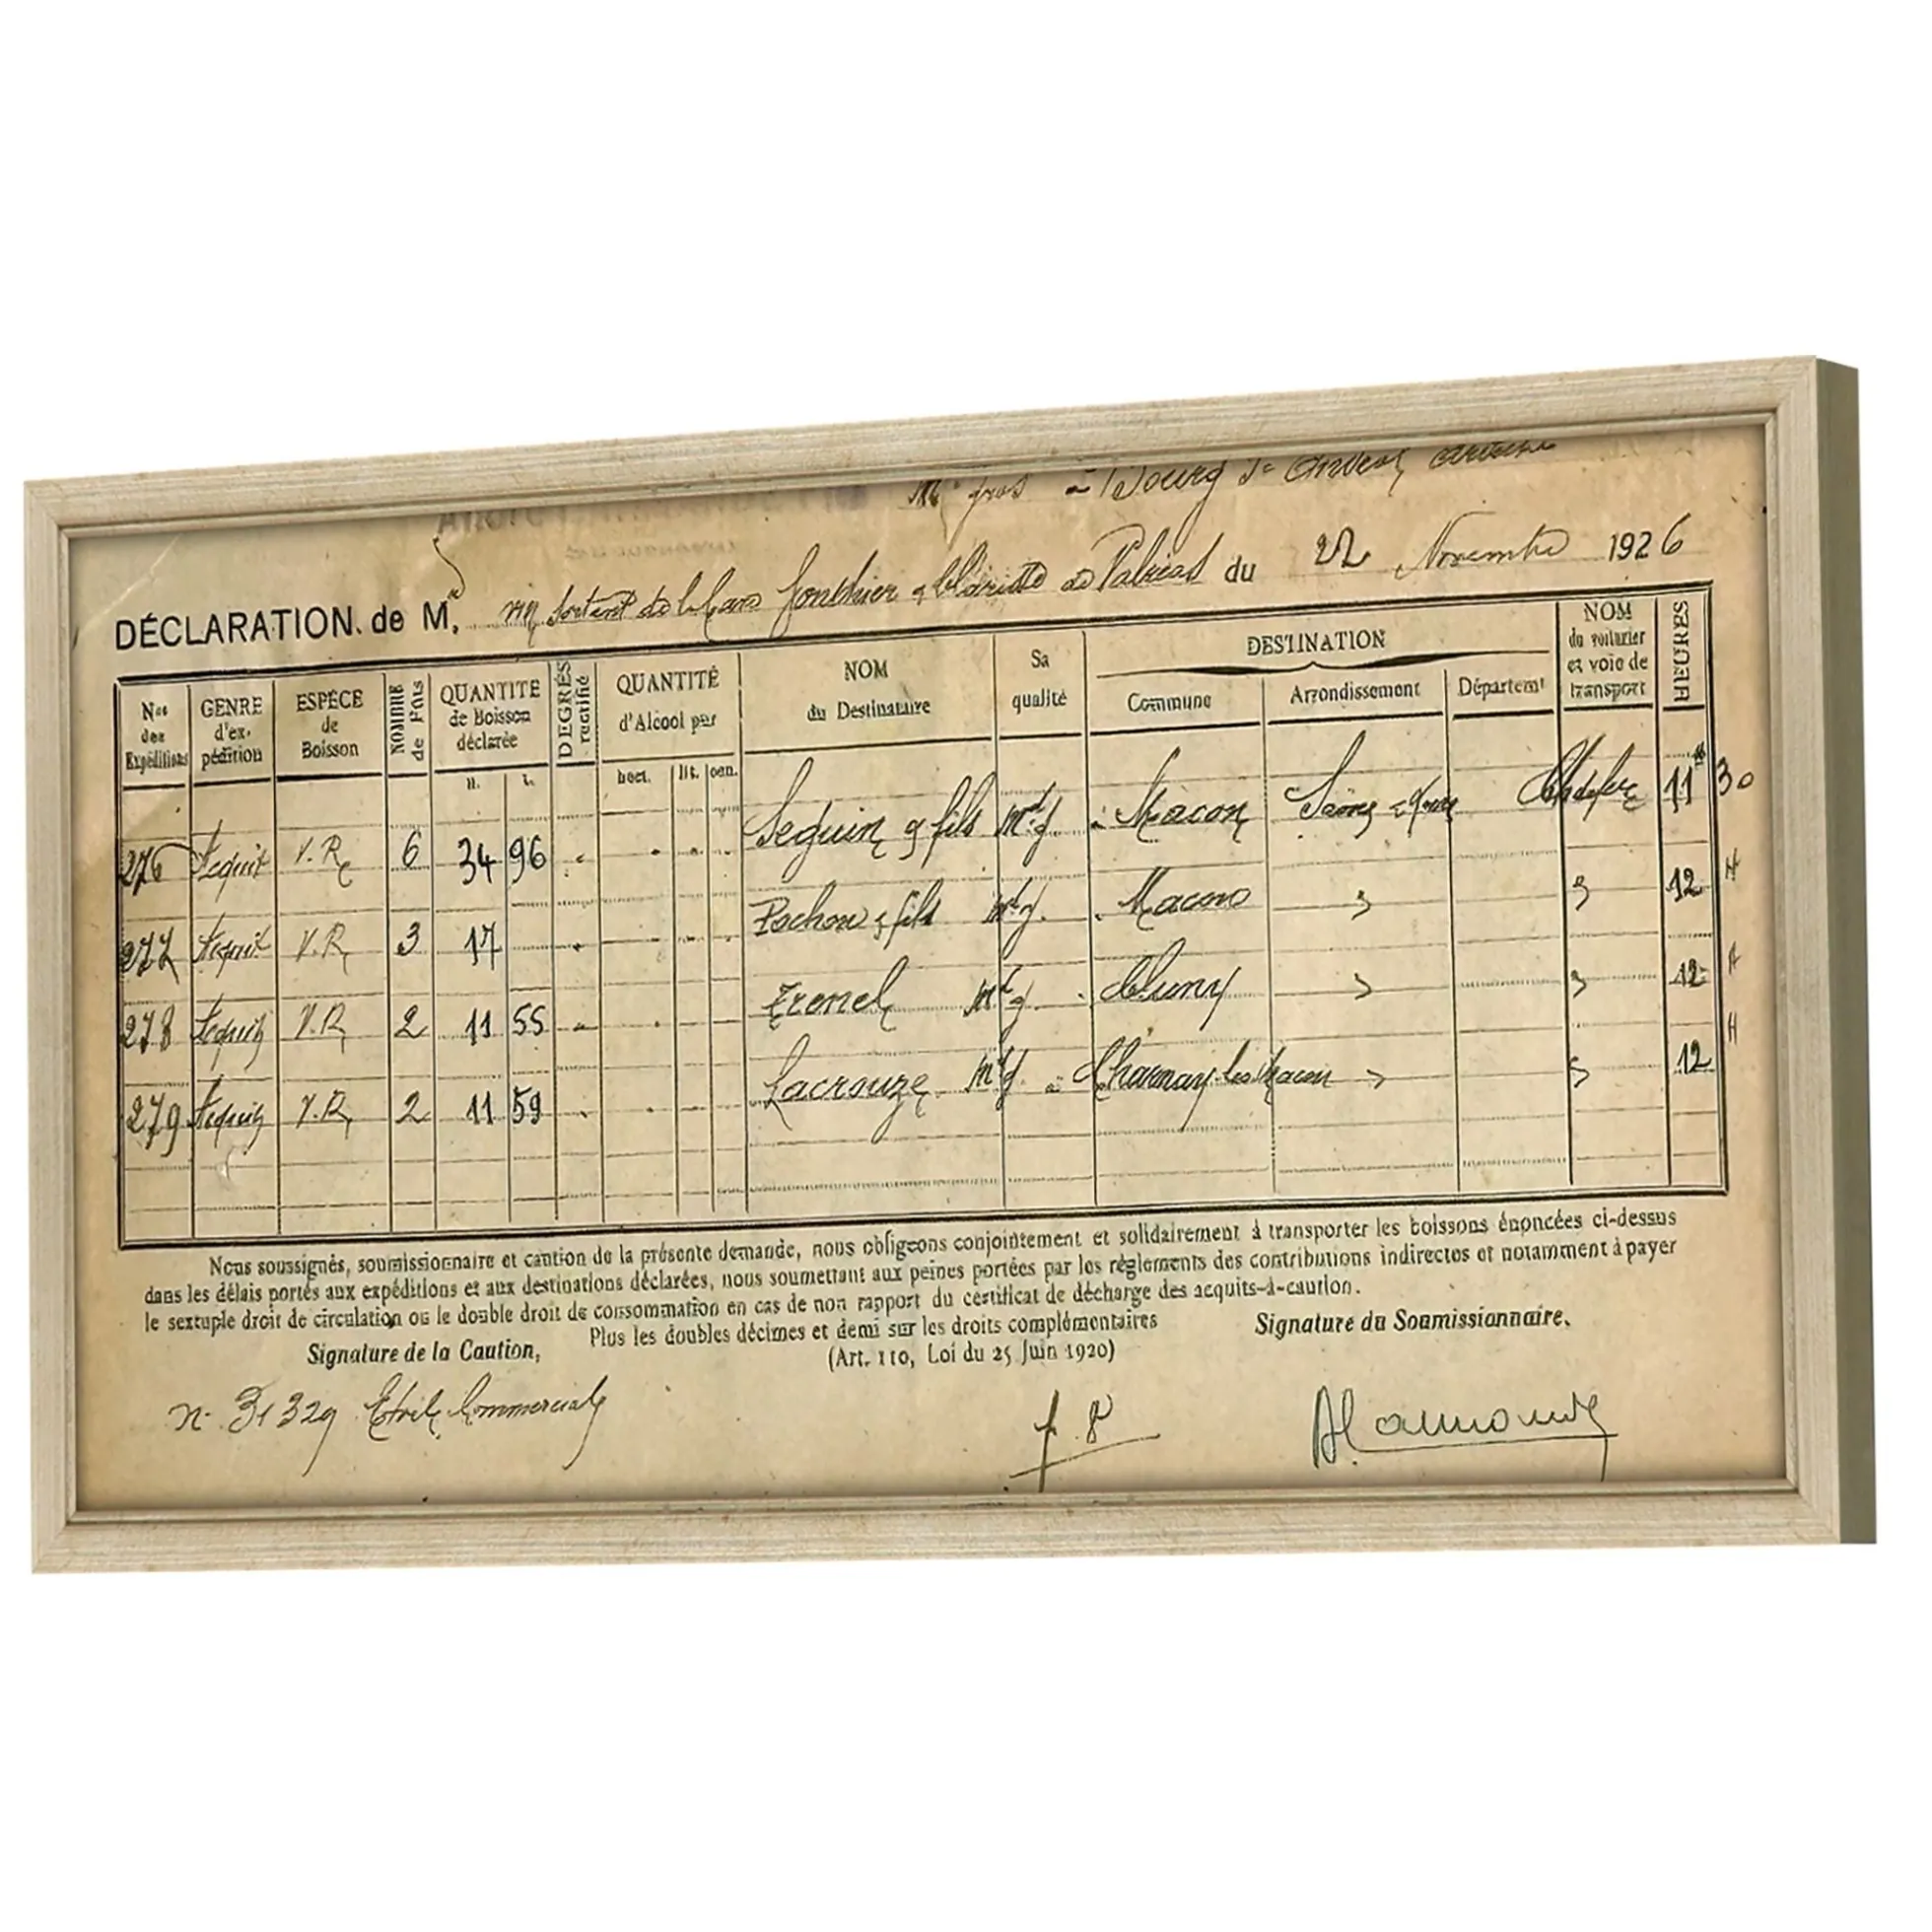 Mᵈ gros à Bourg Sᵗ Andéol
DÉCLARATION de M. sortant de la Cave du 22 Novembre 1926
Nos des Expéditions
GENRE d'expédition
ESPÈCE de Boisson
NOMBRE de Fûts
QUANTITÉ de Boisson déclarée
H. L.
DEGRÉS rectifié
QUANTITÉ d'Alcool par
hect. lit. cen.
NOM du Destinataire
Sa qualité
DESTINATION
Commune Arrondissement Départemt
NOM du voiturier et voie de transport
HEURES
276 Acquit V. R. 6 34 96 Seguin & fils Mᵈ g à Macon Saône & Loire Ch de fer 11 H 30
277 Acquit V. R. 3 17 Pochon & fils Mᵈ g. Macon " " 12 H
278 Acquit V. R. 2 11 55 Mᵈ g. Cluny " " 12 H
279 Acquit V. R. 2 11 59 Lacrouze Mᵈ g. à Charnay-les-Macon " " 12 H
Nous soussignés, soumissionnaire et caution de la présente demande, nous obligeons conjointement et solidairement à transporter les boissons énoncées ci-dessus
dans les délais portés aux expéditions et aux destinations déclarées, nous soumettant aux peines portées par les règlements des contributions indirectes et notamment à payer
le sextuple droit de circulation ou le double droit de consommation en cas de non rapport du certificat de décharge des acquits-à-caution.
Plus les doubles décimes et demi sur les droits complémentaires
(Art. 110, Loi du 25 Juin 1920)
Signature de la Caution,
Signature du Soumissionnaire,
n. 31329 Commerciale
f. 8